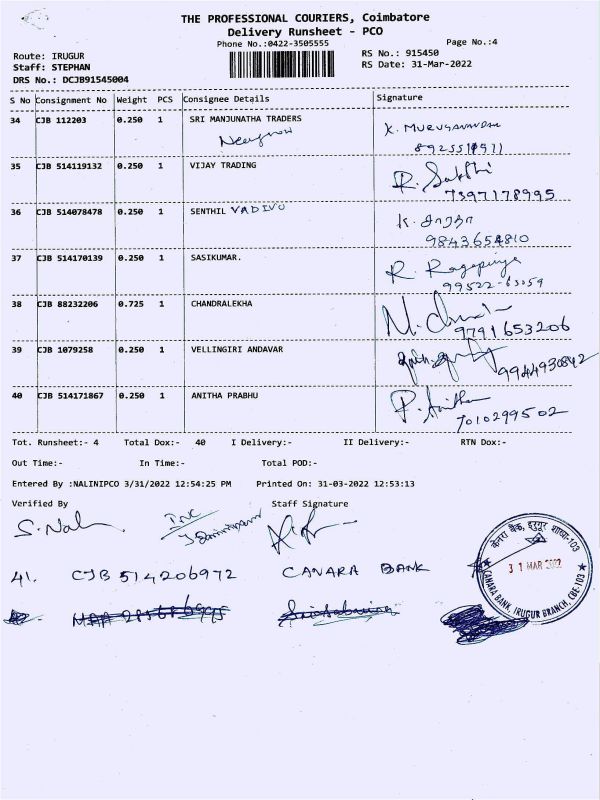 THE PROFESSIONAL COURIERS, Coimbatore
Delivery Runsheet - PCO
Phone No.:0422-3505555
Page No.:4
Route: IRUGUR
RS No.: 915450
Staff: STEPHAN
RS Date: 31-Mar-2022
DRS No.: DCJB91545004
S No Consignment No Weight PCS Consignee Details Signature
34 CJB 112203 0.250 1 SRI MANJUNATHA TRADERS K. MURUGANANDAM
8925511971
35 CJB 514119132 0.250 1 VIJAY TRADING R. Sakthi
7397178995
36 CJB 514078478 0.250 1 SENTHIL VADIVU K.
9843654810
37 CJB 514170139 0.250 1 SASIKUMAR. R. Ragapriya
99522-63059
38 CJB 88232206 0.725 1 CHANDRALEKHA
9791653206
39 CJB 1079258 0.250 1 VELLINGIRI ANDAVAR
9944930842
40 CJB 514171867 0.250 1 ANITHA PRABHU P. Anitha
7010299502
Tot. Runsheet:- 4 Total Dox:- 40 I Delivery:- II Delivery:- RTN Dox:-
Out Time:- In Time:- Total POD:-
Entered By :NALINIPCO 3/31/2022 12:54:25 PM Printed On: 31-03-2022 12:53:13
Verified By Staff Signature
41. CJB 514206972 CANARA BANK
केनरा बैंक, इरुगूर शाखा-103
31 MAR 2022
CANARA BANK, IRUGUR BRANCH, CBE 103